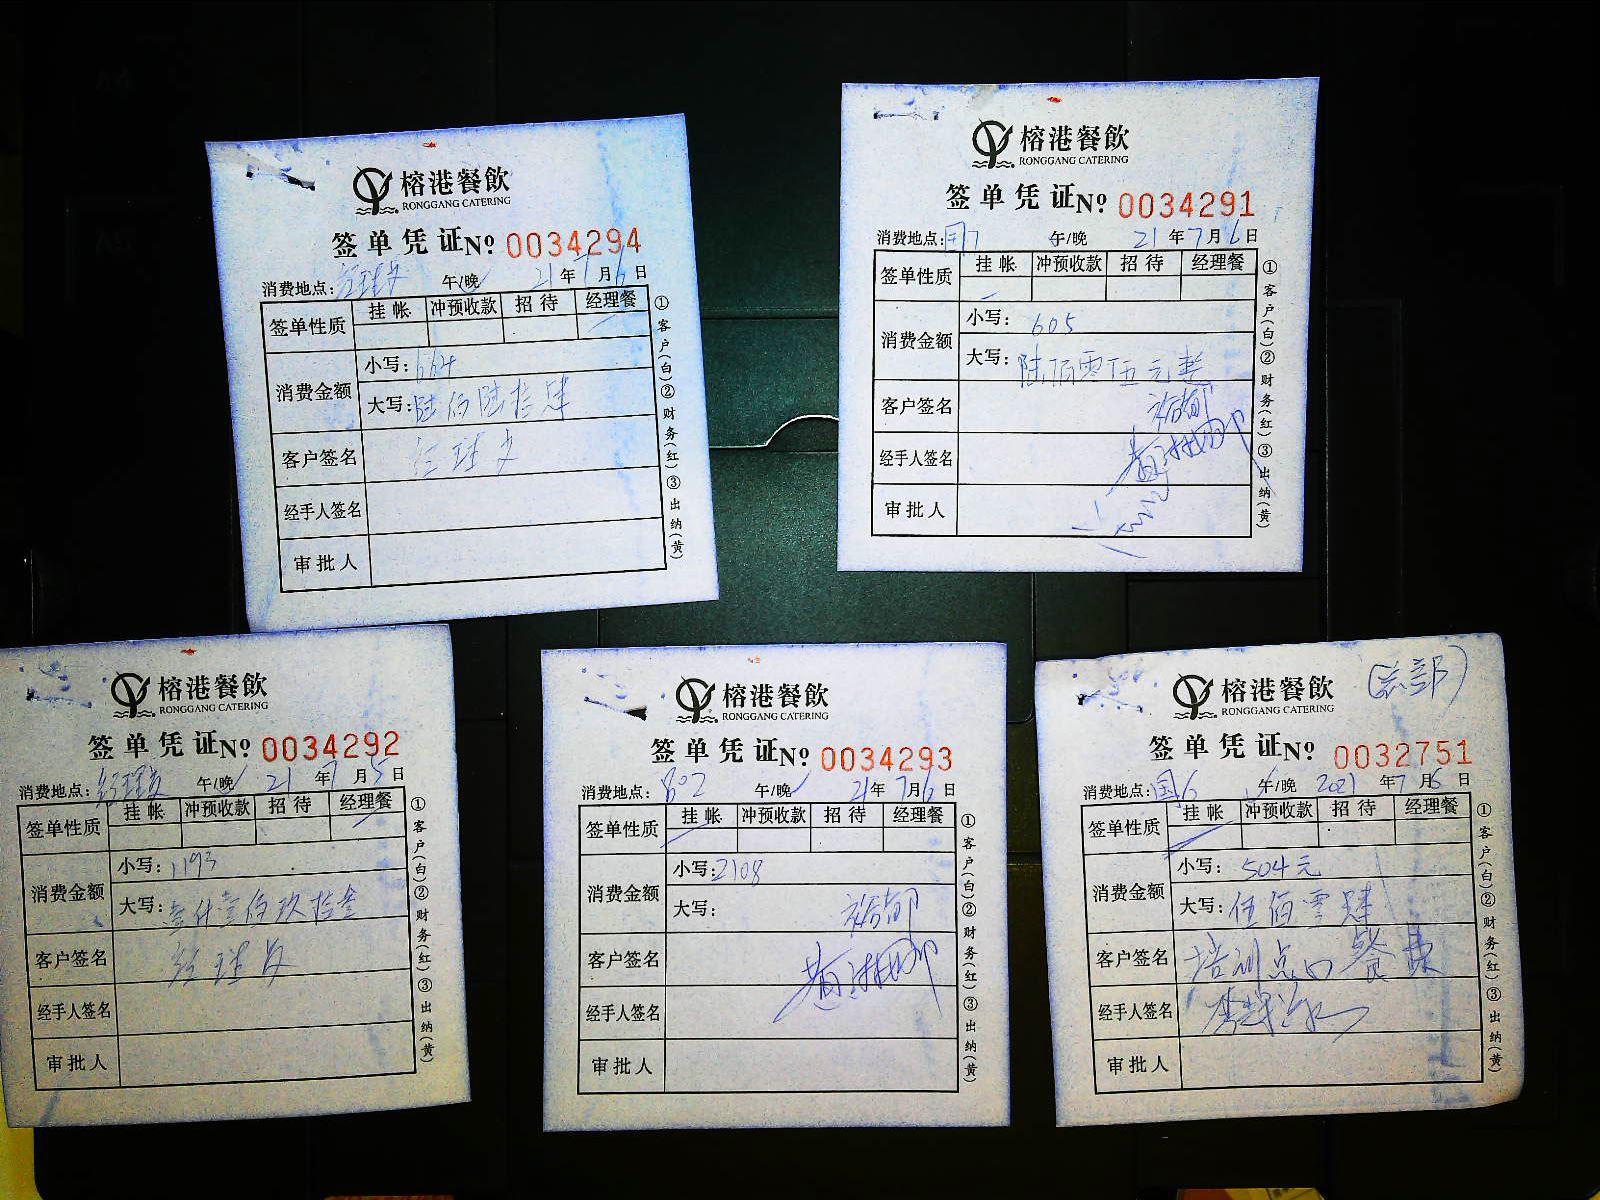 榕港餐飲
RONGGANG CATERING
签单凭证 № 0034294
消费地点: 午/晚 21年7月6日
签单性质 挂帐 冲预收款 招待 经理餐
消费金额 小写: 664
大写: 陆佰陆拾肆
客户签名
经手人签名
审批人
①客户(白)②财务(红)③出纳(黄)
榕港餐飲
RONGGANG CATERING
签单凭证 № 0034291
消费地点: 午/晚 21年7月6日
签单性质 挂帐 冲预收款 招待 经理餐
消费金额 小写: 605
大写: 陆佰零伍元整
客户签名
经手人签名
审批人
①客户(白)②财务(红)③出纳(黄)
榕港餐飲
RONGGANG CATERING
签单凭证 № 0034292
消费地点: 午/晚 21年7月5日
签单性质 挂帐 冲预收款 招待 经理餐
消费金额 小写: 1193
大写: 壹仟壹佰玖拾叁
客户签名
经手人签名
审批人
①客户(白)②财务(红)③出纳(黄)
榕港餐飲
RONGGANG CATERING
签单凭证 № 0034293
消费地点: 802 午/晚 21年7月6日
签单性质 挂帐 冲预收款 招待 经理餐
消费金额 小写: 2108
大写:
客户签名
经手人签名
审批人
①客户(白)②财务(红)③出纳(黄)
榕港餐飲 (总部)
RONGGANG CATERING
签单凭证 № 0032751
消费地点: 国6 午/晚 2021年7月6日
签单性质 挂帐 冲预收款 招待 经理餐
消费金额 小写: 504元
大写: 伍佰零肆
客户签名 培训点心餐费
经手人签名
审批人
①客户(白)②财务(红)③出纳(黄)